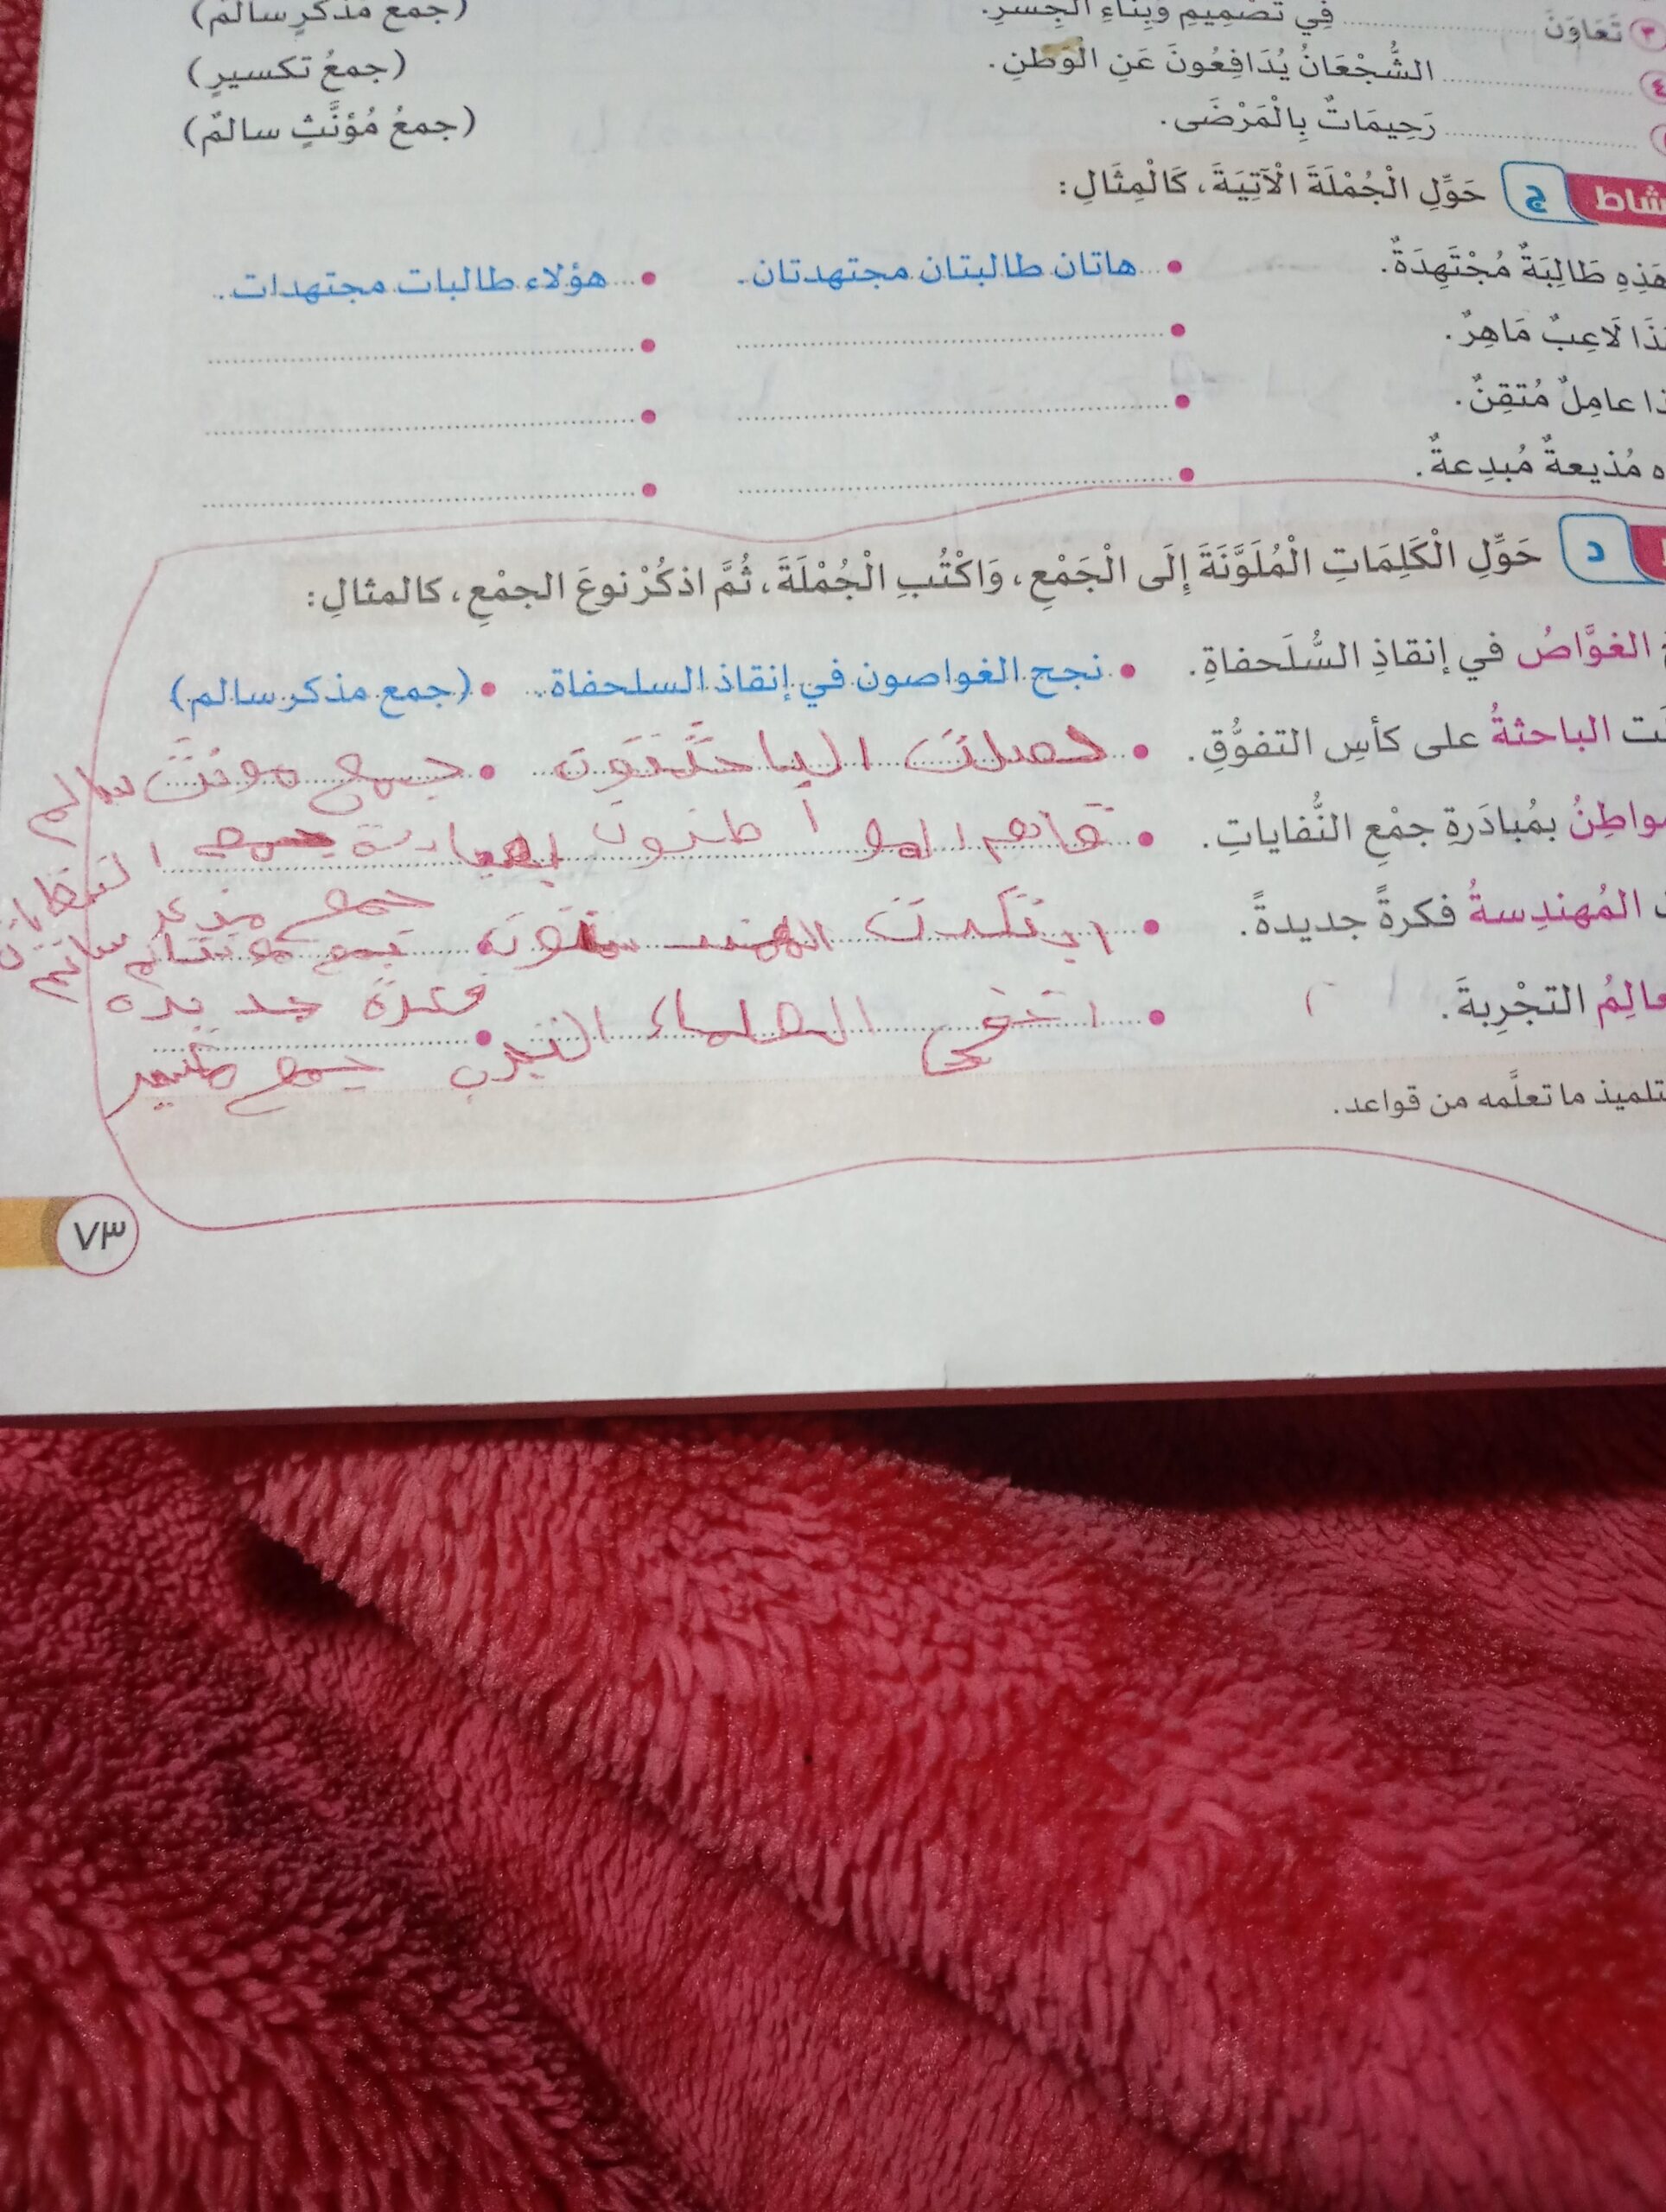 ٣ تَعَاوَنَ .......... فِي تَصْمِيمِ وَبِنَاءِ الْجِسْرِ. (جمع مذكرٍ سالم)
٤ .......... الشُّجْعَانُ يُدَافِعُونَ عَنِ الْوَطَنِ. (جمعُ تكسيرٍ)
.......... رَحِيمَاتٌ بِالْمَرْضَى. (جمعُ مُؤنَّثٍ سالمٌ)
شاط ج حَوِّلِ الْجُمْلَةَ الْآتِيَةَ، كَالْمِثَالِ:
هَذِهِ طَالِبَةٌ مُجْتَهِدَةٌ. • هاتان طالبتان مجتهدتان. • هؤلاء طالبات مجتهدات.
ذَا لَاعِبٌ مَاهِرٌ. • .......... • ..........
ذا عامِلٌ مُتقِنٌ. • .......... • ..........
ه مُذيعةٌ مُبدِعةٌ. • .......... • ..........
د حَوِّلِ الْكَلِمَاتِ الْمُلَوَّنَةَ إِلَى الْجَمْعِ، وَاكْتُبِ الْجُمْلَةَ، ثُمَّ اذكُرْ نوعَ الجمْعِ، كالمثالِ:
الغوَّاصُ في إنقاذِ السُّلَحفاةِ. • نجح الغواصون في إنقاذ السلحفاة. • (جمع مذكر سالم)
ت الباحثةُ على كأسِ التفوُّقِ. • حصلت • جمع مؤنث سالم
مواطِنُ بمُبادَرةِ جمْعِ النُّفاياتِ. • قام المواطنون جمع
المُهندِسةُ فكرةً جديدةً. • ابتكرت جمع
فكرة جديدة
عالِمُ التجْرِبةَ. • العلماء • جمع
تلميذ ما تعلَّمه من قواعد.
٧٣